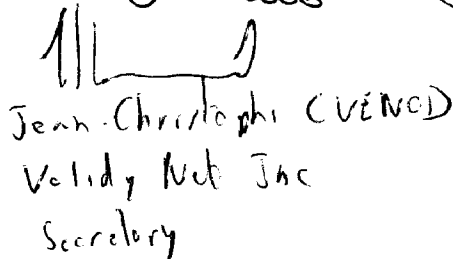 Jean-Christophe (VENCD)
Validy Net Inc
Secretary